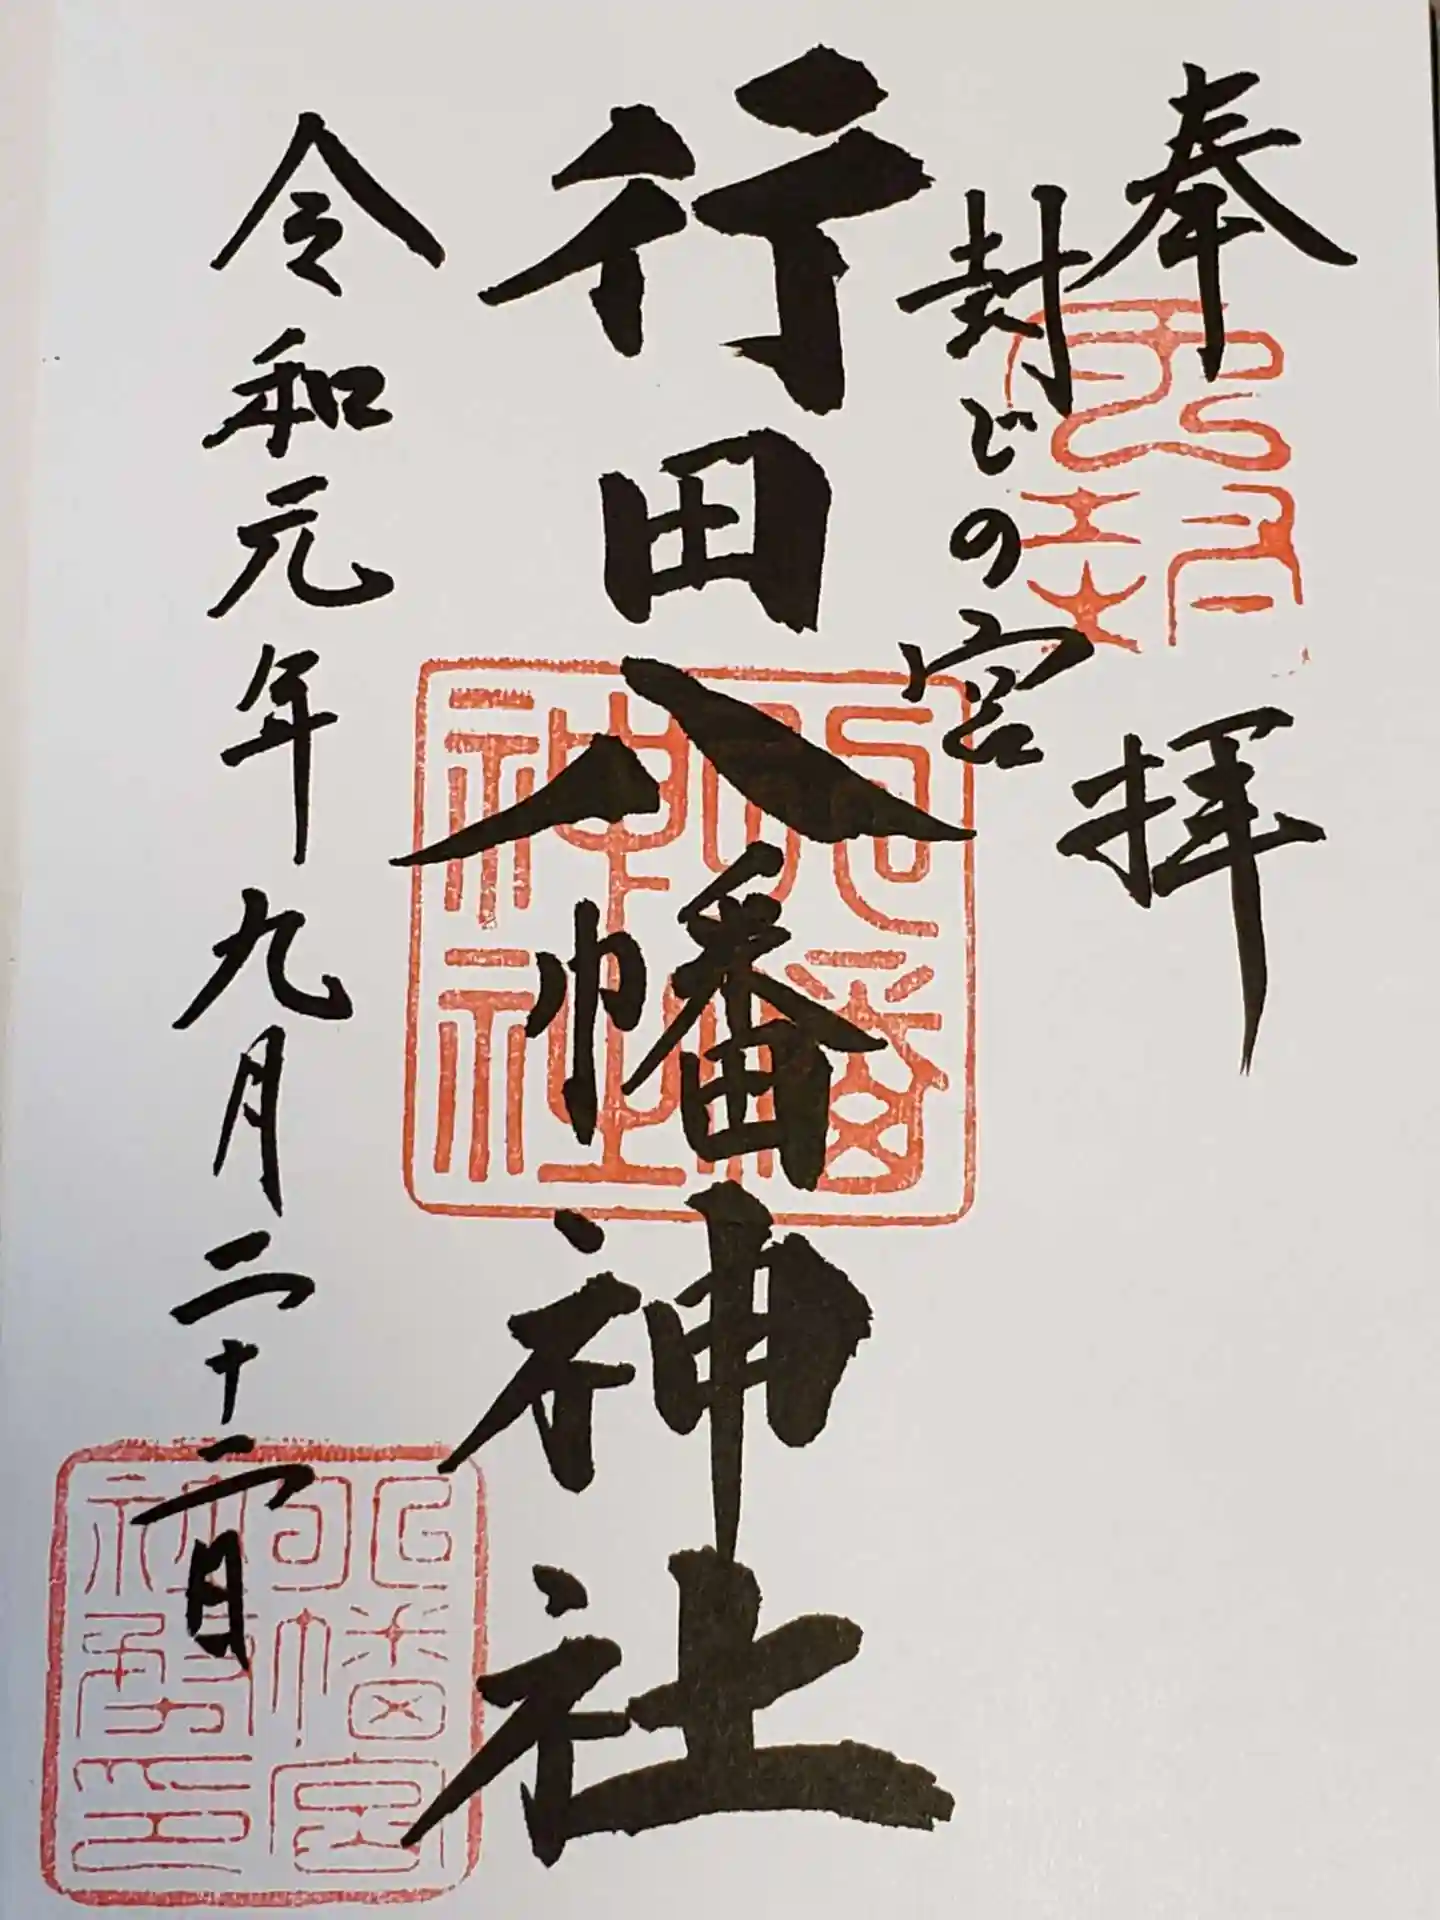 奉拝
封じの宮
行田八幡神社
令和元年九月二十二日
八幡神社
八幡宮神璽印